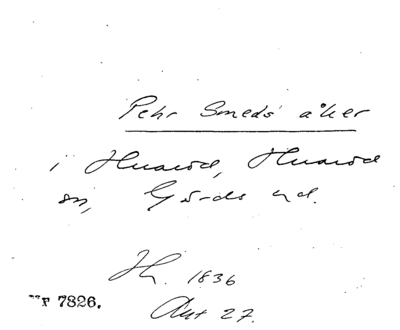 Pehr Smeds åker
i Huaröd, Huaröd
sn, Gärds hd.
Jh. 1836
Akt 27.
7826.